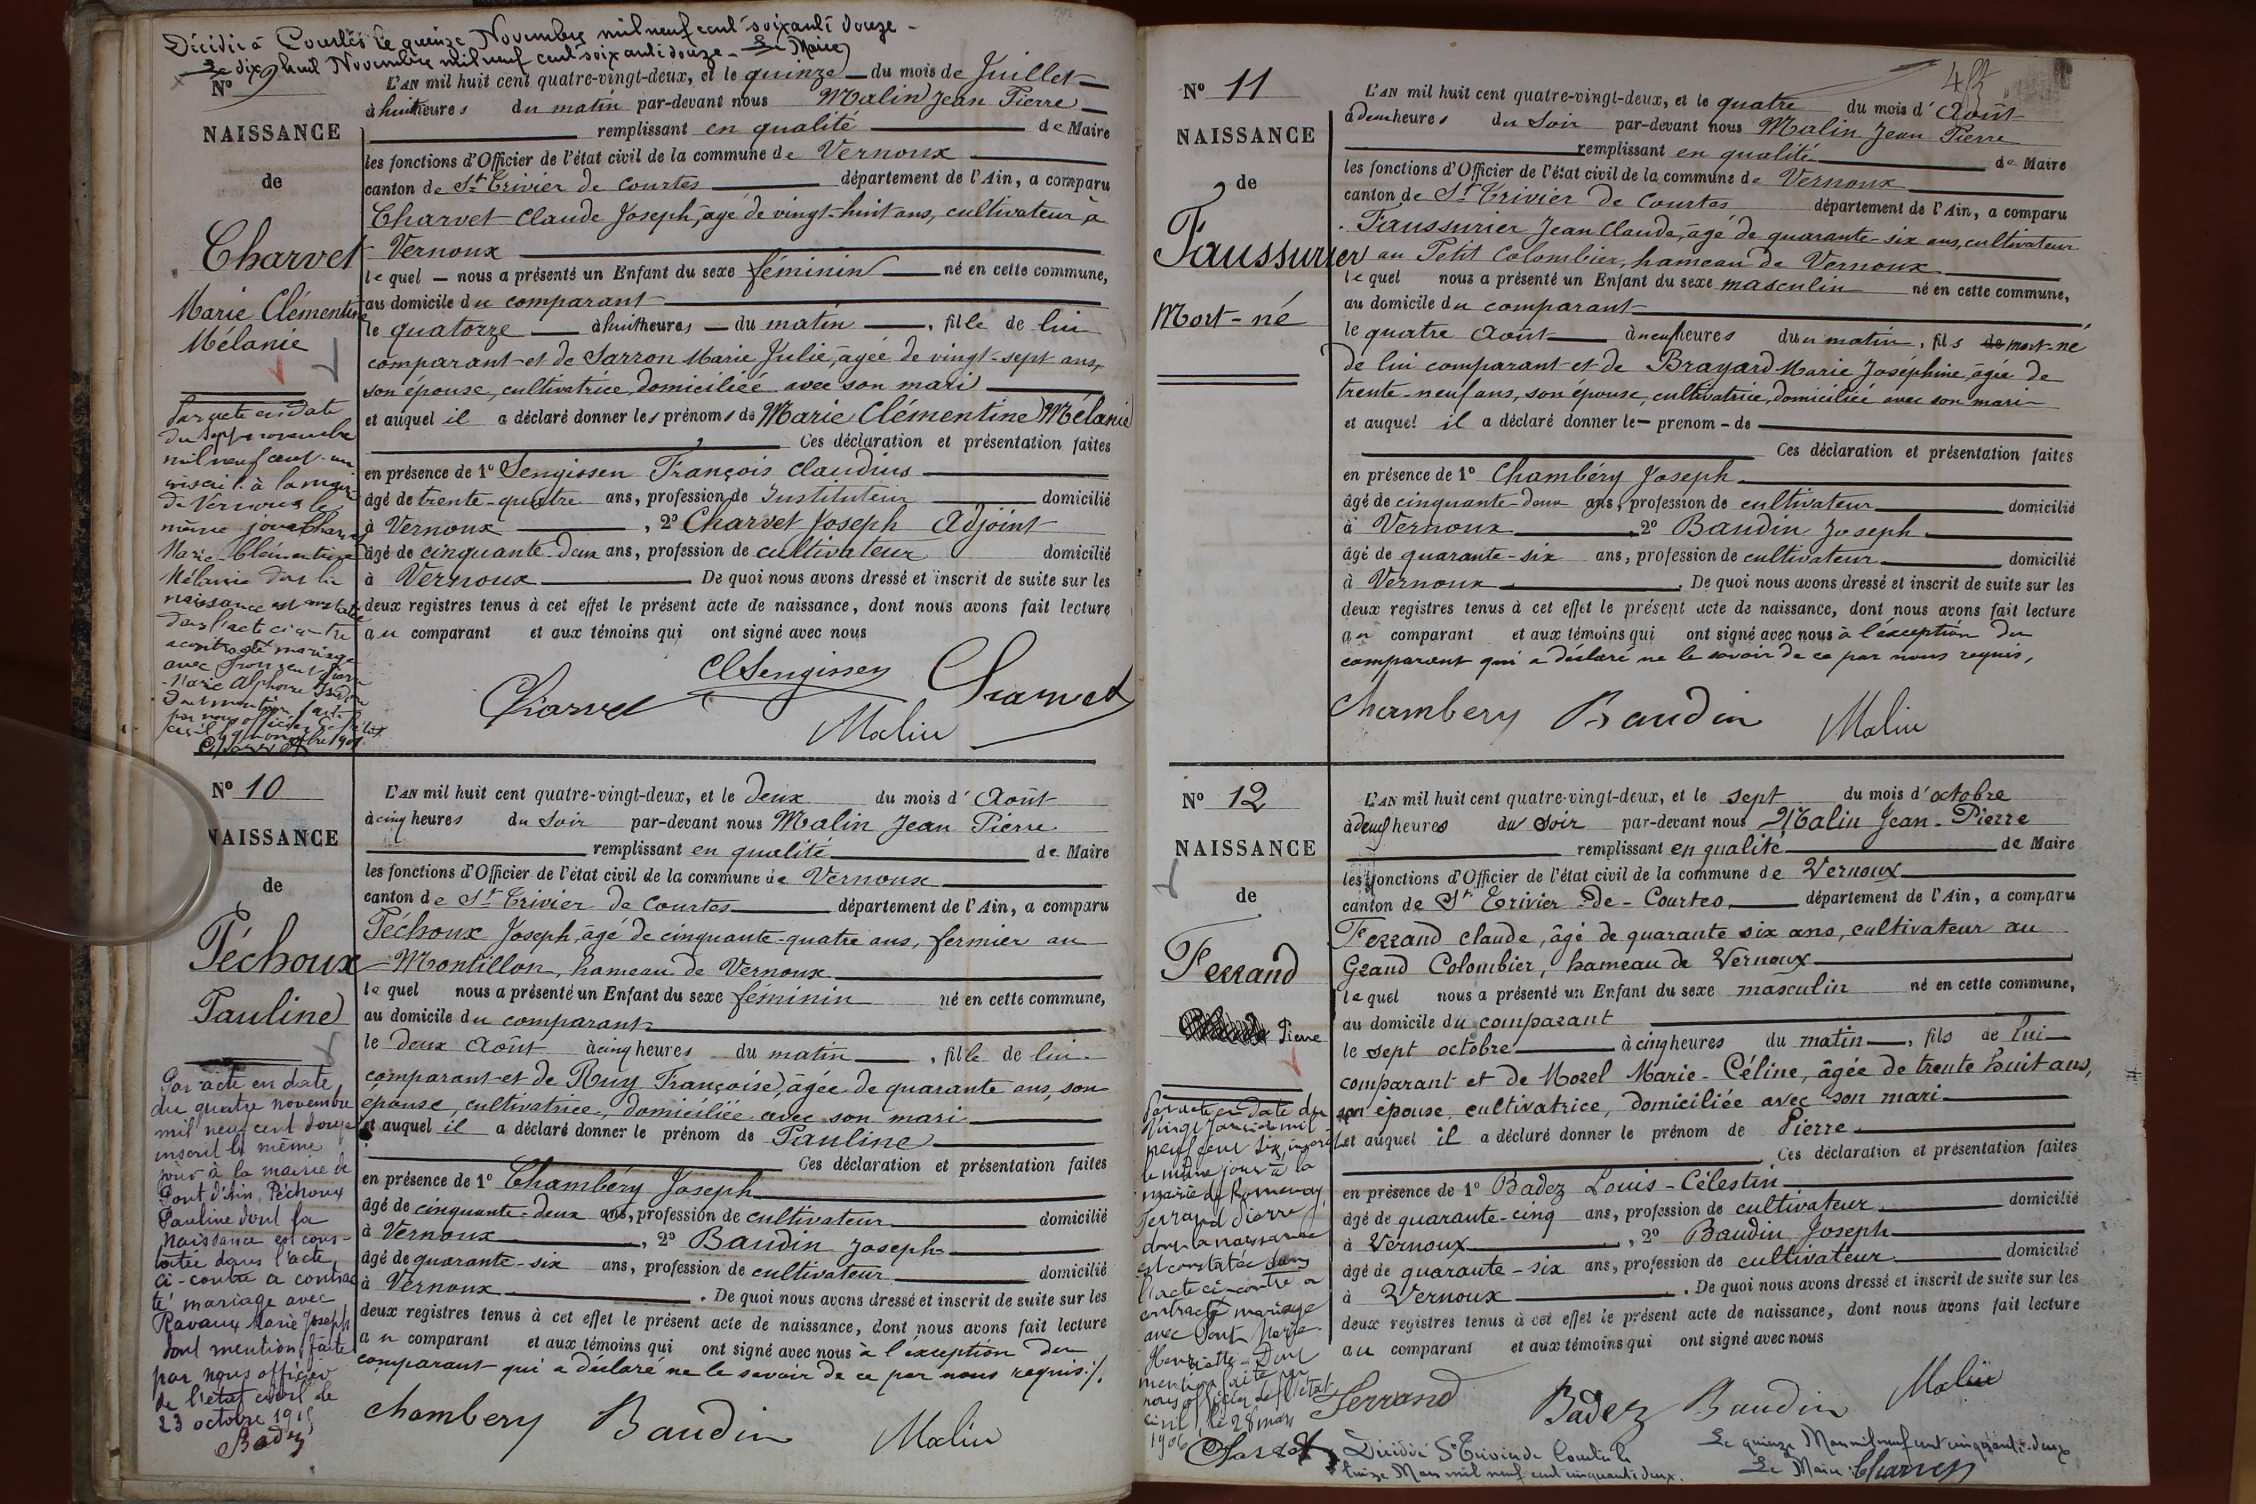 Décédée à Courtes le quinze Novembre mil neuf cent soixante douze -
Le dix huit Novembre mil neuf cent soixante douze - Le Maire
N° 9
NAISSANCE
de
Charvet
Marie Clémentine
Mélanie
Par acte en date
du sept novembre
mil neuf cent un
inscrit à la mairie
de Vernoux le
même jour Charvet
Marie Clémentine
Mélanie dont la
naissance est constatée
dans l'acte ci-contre
a contracté mariage
avec
Marie Alphonse
dont mention faite
par nous officier de l'état
civil le 9 novembre 1901
L'AN mil huit cent quatre-vingt-deux, et le quinze du mois de Juillet
à huit heures du matin par-devant nous Malin Jean Pierre
remplissant en qualité de Maire
les fonctions d'Officier de l'état civil de la commune de Vernoux
canton de St Trivier de Courtes département de l'Ain, a comparu
Charvet Claude Joseph, âgé de vingt-huit ans, cultivateur à
Vernoux
lequel nous a présenté un Enfant du sexe féminin né en cette commune,
au domicile du comparant
le quatorze à huit heures du matin, fille de lui
comparant et de Sarron Marie Julie, âgée de vingt-sept ans,
son épouse, cultivatrice, domiciliée avec son mari
et auquel il a déclaré donner les prénoms de Marie Clémentine Mélanie
Ces déclaration et présentation faites
en présence de 1° Sengissen François Claudius
âgé de trente-quatre ans, profession de Instituteur domicilié
à Vernoux, 2° Charvet Joseph Adjoint
âgé de cinquante-deux ans, profession de cultivateur domicilié
à Vernoux De quoi nous avons dressé et inscrit de suite sur les
deux registres tenus à cet effet le présent acte de naissance, dont nous avons fait lecture
au comparant et aux témoins qui ont signé avec nous
Cl Sengissen
Charvet
Charvet
Malin
N° 10
NAISSANCE
de
Péchoux
Pauline
Par acte en date
du quatre novembre
mil neuf cent douze
inscrit le même
jour à la mairie de
Pont d'Ain, Péchoux
Pauline dont la
naissance est cons-
tatée dans l'acte
ci-contre a contrac
té mariage avec
Ravaux Marie Joseph
dont mention faite
par nous officier
de l'état civil le
23 octobre 1915
Badez
L'AN mil huit cent quatre-vingt-deux, et le deux du mois d'Août
à cinq heures du soir par-devant nous Malin Jean Pierre
remplissant en qualité de Maire
les fonctions d'Officier de l'état civil de la commune de Vernoux
canton de St Trivier de Courtes département de l'Ain, a comparu
Péchoux Joseph, âgé de cinquante-quatre ans, fermier au
Montillon, hameau de Vernoux
lequel nous a présenté un Enfant du sexe féminin né en cette commune,
au domicile du comparant
le deux Août à cinq heures du matin, fille de lui
comparant et de Ruy Françoise, âgée de quarante ans, son
épouse, cultivatrice, domiciliée avec son mari
et auquel il a déclaré donner le prénom de Pauline
Ces déclaration et présentation faites
en présence de 1° Chambéry Joseph
âgé de cinquante-deux ans, profession de cultivateur domicilié
à Vernoux, 2° Baudin Joseph
âgé de quarante-six ans, profession de cultivateur domicilié
à Vernoux. De quoi nous avons dressé et inscrit de suite sur les
deux registres tenus à cet effet le présent acte de naissance, dont nous avons fait lecture
au comparant et aux témoins qui ont signé avec nous à l'éxception du
comparant qui a déclaré ne le savoir de ce par nous requis./.
Chambery Baudin Malin
N° 11
NAISSANCE
de
Faussurier
Mort-né
L'AN mil huit cent quatre-vingt-deux, et le quatre du mois d'Août
à deux heures du soir par-devant nous Malin Jean Pierre
remplissant en qualité de Maire
les fonctions d'Officier de l'état civil de la commune de Vernoux
canton de St Trivier de Courtes département de l'Ain, a comparu
Faussurier Jean Claude, âgé de quarante-six ans, cultivateur
au Petit Colombier, hameau de Vernoux
lequel nous a présenté un Enfant du sexe masculin né en cette commune,
au domicile du comparant
le quatre Août à neuf heures du matin, fils de mort-né
de lui comparant et de Brayard Marie Joséphine, âgée de
trente-neuf ans, son épouse, cultivatrice, domiciliée avec son mari
et auquel il a déclaré donner le - prenom - de
Ces déclaration et présentation faites
en présence de 1° Chambéry Joseph
âgé de cinquante-deux ans, profession de cultivateur domicilié
à Vernoux 2° Baudin Joseph
âgé de quarante-six ans, profession de cultivateur domicilié
à Vernoux. De quoi nous avons dressé et inscrit de suite sur les
deux registres tenus à cet effet le présent acte de naissance, dont nous avons fait lecture
au comparant et aux témoins qui ont signé avec nous à l'éxception du
comparant qui a déclaré ne le savoir de ce par nous requis,
Chambery Baudin Malin
N° 12
NAISSANCE
de
Ferrand
Pierre
Par acte en date du
vingt janvier mil
neuf cent six, inscrit
le même jour à la
mairie de Romenay,
Ferrand Pierre
dont la naissance
est constatée dans
l'acte ci-contre a
contracté mariage
avec Pont Marie
Henriette - Dont
mention faite par
nous officier de l'état
civil, le 28 mars
1906
L'AN mil huit cent quatre-vingt-deux, et le sept du mois d'octobre
à deux heures du soir par-devant nous Malin Jean-Pierre
remplissant en qualité de Maire
les fonctions d'Officier de l'état civil de la commune de Vernoux
canton de St Trivier-de-Courtes département de l'Ain, a comparu
Ferrand Claude, âgé de quarante six ans, cultivateur au
Grand Colombier, hameau de Vernoux
lequel nous a présenté un Enfant du sexe masculin né en cette commune,
au domicile du comparant
le sept octobre à cinq heures du matin, fils de lui
comparant et de Morel Marie-Céline, âgée de trente huit ans,
son épouse, cultivatrice, domiciliée avec son mari
et auquel il a déclaré donner le prénom de Pierre
Ces déclaration et présentation faites
en présence de 1° Badez Louis-Célestin
âgé de quarante-cinq ans, profession de cultivateur domicilié
à Vernoux, 2° Baudin Joseph
âgé de quarante-six ans, profession de cultivateur domicilié
à Vernoux. De quoi nous avons dressé et inscrit de suite sur les
deux registres tenus à cet effet le présent acte de naissance, dont nous avons fait lecture
au comparant et aux témoins qui ont signé avec nous
Ferrand Badez Baudin Malin
Décédé St Trivier de Courtes le
treize Mars mil neuf cent cinquante deux.
Le quinze Mars mil neuf cent cinquante-deux
Le Maire Charvet